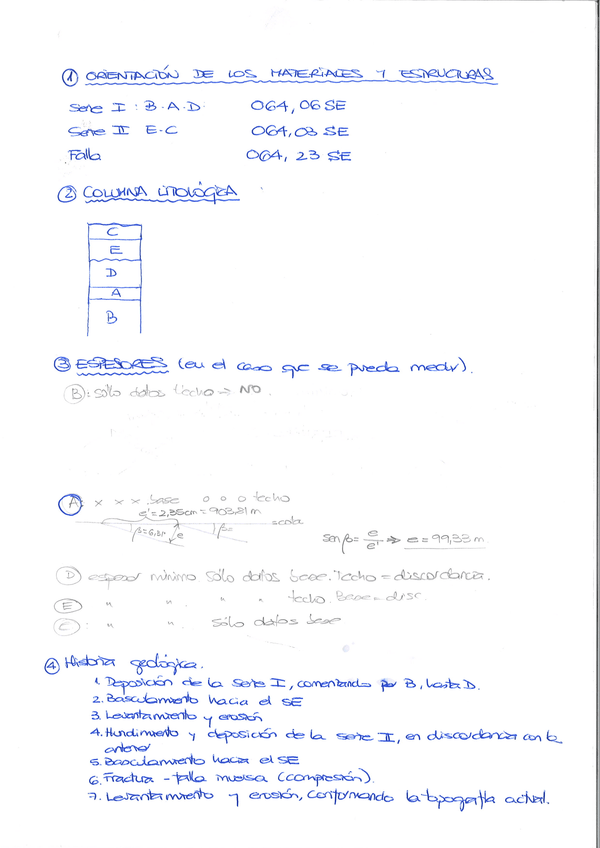 ① ORIENTACIÓN DE LOS MATERIALES Y ESTRUCTURAS
Serie I : B.A.D. 064, 06 SE
Serie II E-C 064, 03 SE
Falla 064, 23 SE
② COLUMNA LITOLÓGICA
C
E
D
A
B
③ ESPESORES (en el caso que se pueda medir).
B: sólo datos techo → NO.
A: x x x base o o o techo
e' = 2,35cm = 903,81 m
β=6,31º e β= escala
sen β = e/e' ⇒ e = 99,33 m
D espesor mínimo. Sólo datos base. Techo = discordancia.
E " " " " techo. Base = disc.
C: " " sólo datos base
④ Historia geológica.
1. Deposición de la serie I, comenzando por B, hasta D.
2. Basculamiento hacia el SE
3. Levantamiento y erosión
4. Hundimiento y deposición de la serie II, en discordancia con la
anterior
5. Basculamiento hacia el SE
6. Fractura - falla inversa (compresión).
7. Levantamiento y erosión, conformando la topografía actual.